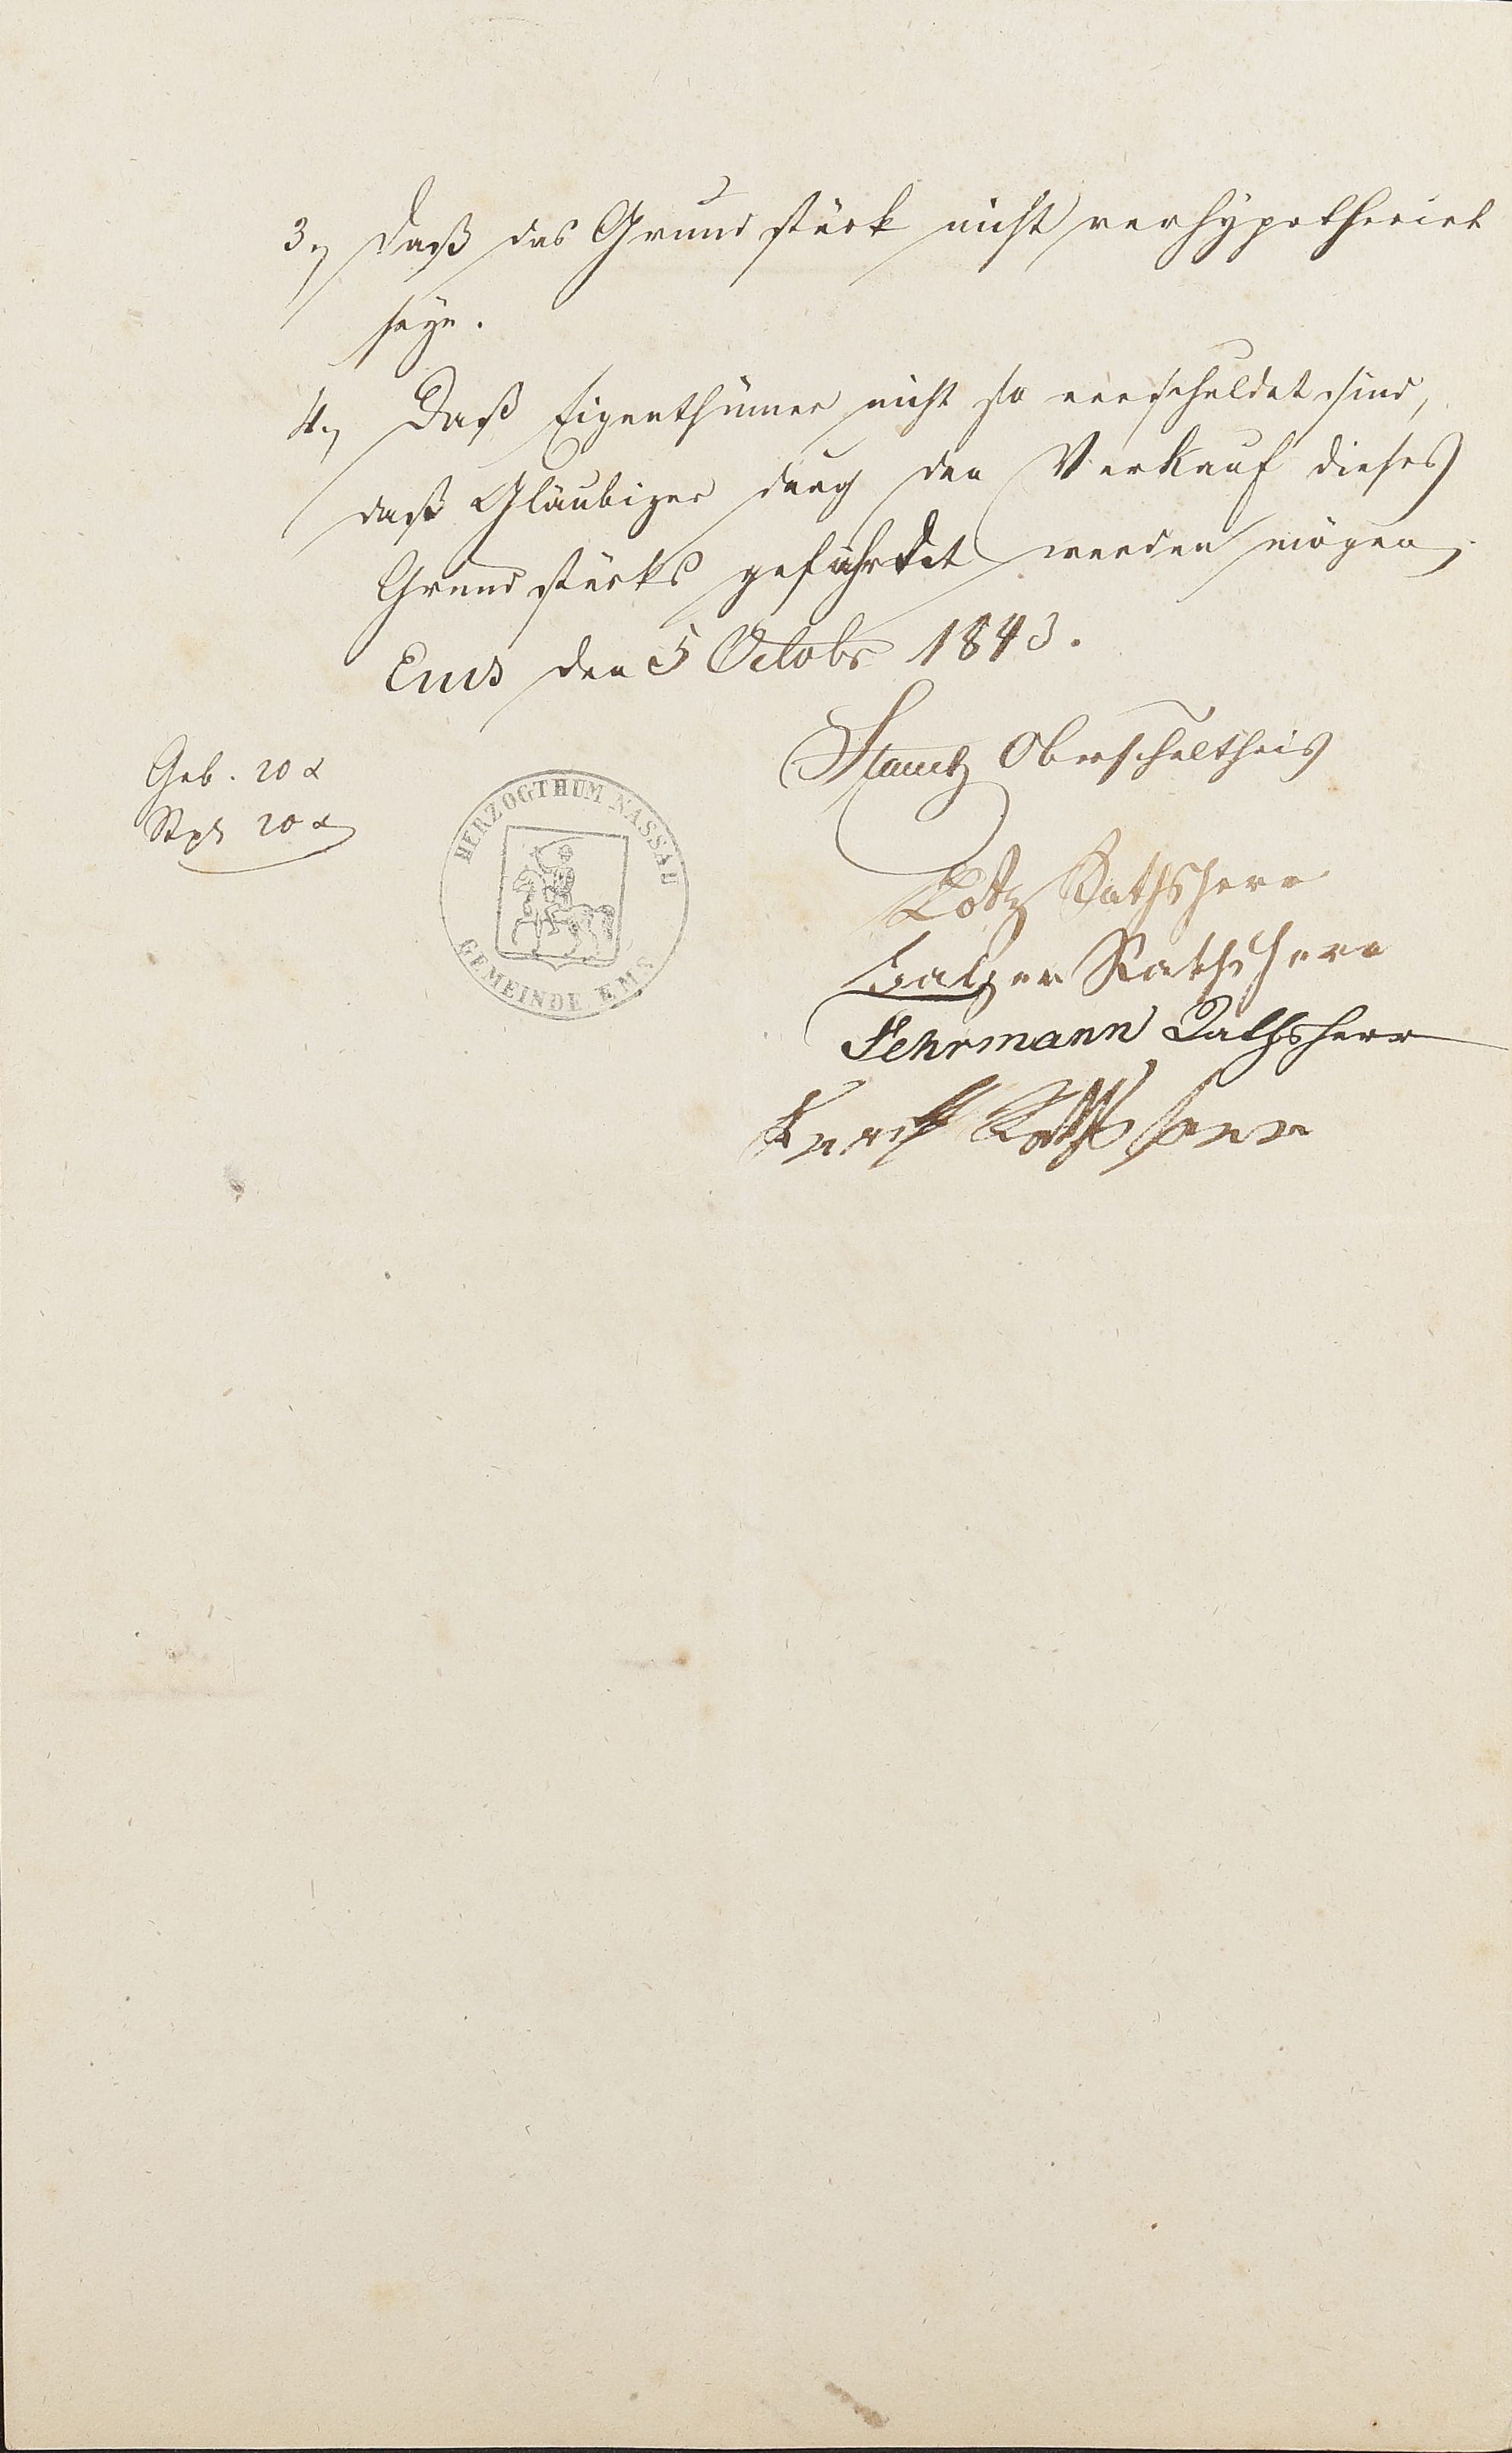 3.) daß das Grundstück nicht verhypothecirt
seye.
4.) Daß Eigenthümer nicht so verschuldet sind,
daß Gläubiger durch den Verkauf dieses
Grundstücks gefährdet werden mögen,
Ems den 5 Octobr 1843.
Oberschultheis
Geb. 20 x
Stpl 20 x
HERZOGTHUM NASSAU
GEMEINDE EMS
Rathsherr
Balzer Rathsherr
Fehrmann Rathsherr
Rathsherr